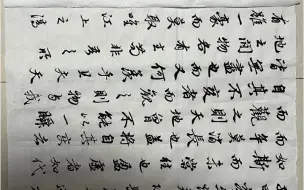 斯而未嘗往也盈虛者如代
而卒莫消長也盖將自其變者
而觀之則天地曾不能以一瞬
自其不變者而觀之則物與我
皆無盡也而又何羡乎且夫天
地之間物各有主苟非吾之所
有雖一豪而莫取唯江上之清